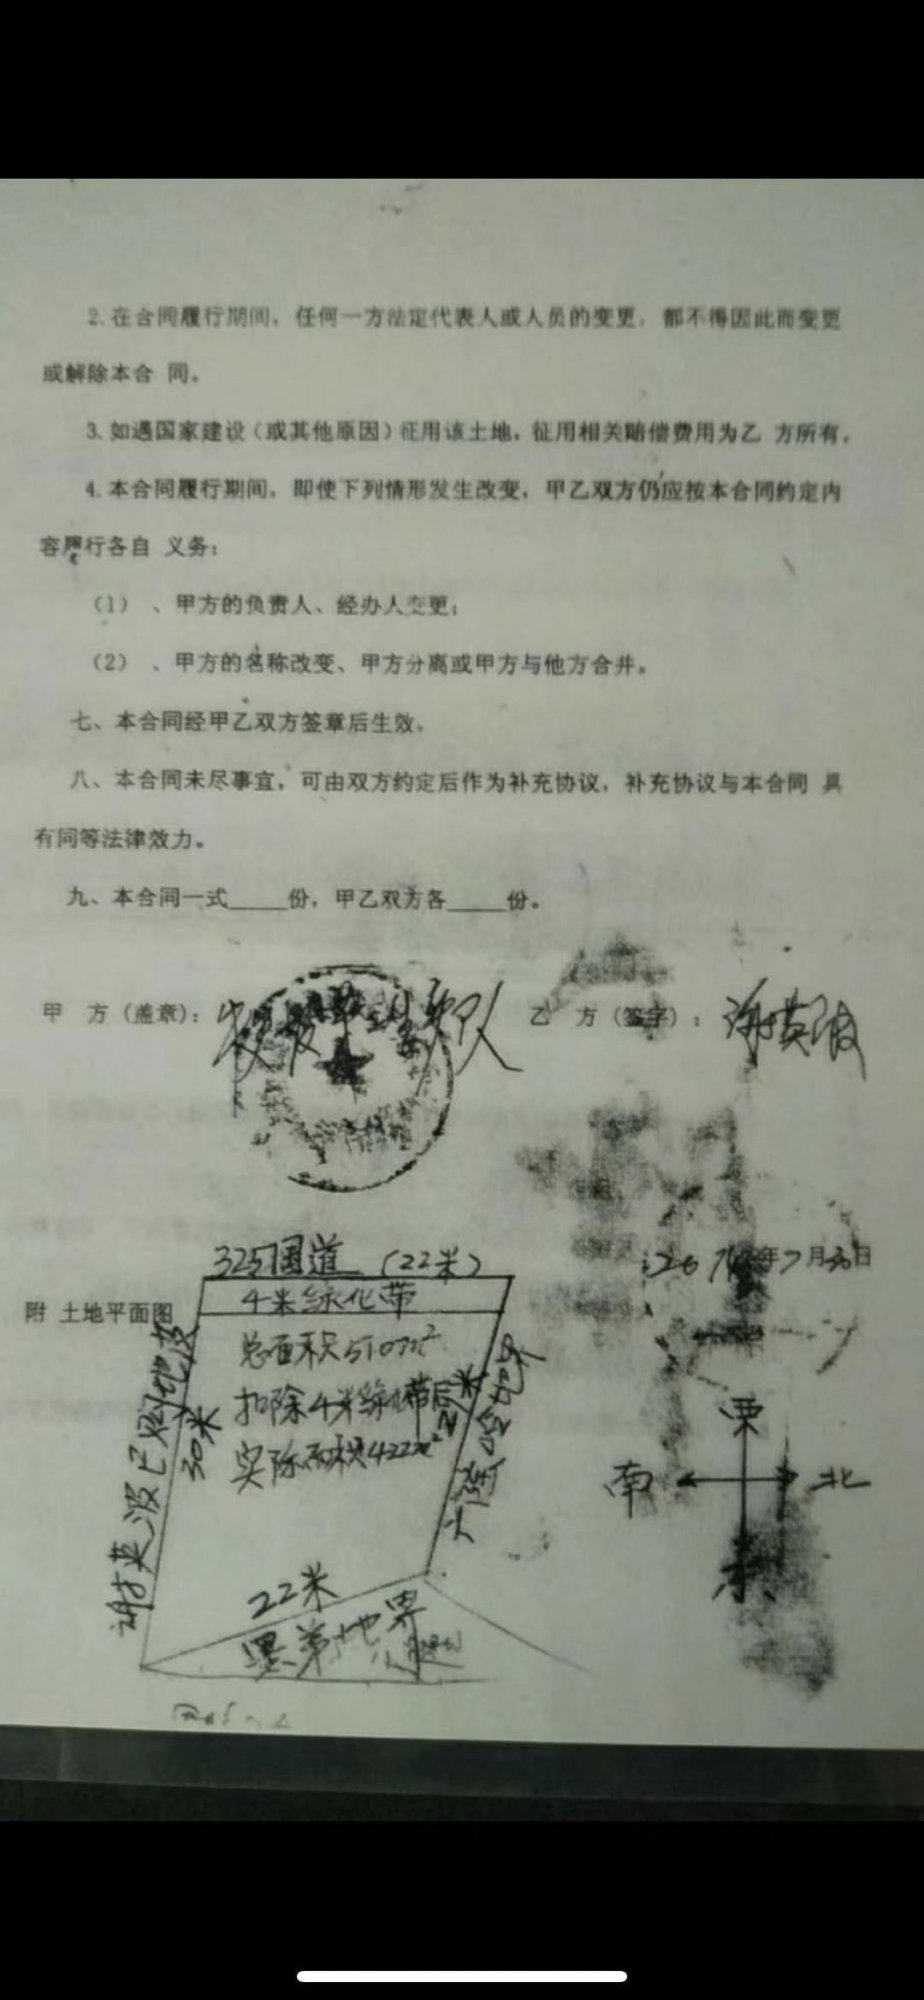 2.在合同履行期间，任何一方法定代表人或人员的变更，都不得因此而变更
或解除本合 同。
3.如遇国家建设（或其他原因）征用该土地，征用相关赔偿费用为乙 方所有。
4.本合同履行期间，即使下列情形发生改变，甲乙双方仍应按本合同约定内
容履行各自 义务：
（1） 、甲方的负责人、经办人变更；
（2） 、甲方的名称改变、甲方分离或甲方与他方合并。
七、本合同经甲乙双方签章后生效。
八、本合同未尽事宜，可由双方约定后作为补充协议，补充协议与本合同 具
有同等法律效力。
九、本合同一式_____份，甲乙双方各_____份。
甲 方（盖章）：
乙 方（签字）：谢英波
年7月30日
325国道 （22米）
附 土地平面图
4米绿化带
总面积510m²
扣除4米绿化带后
实际面积422m²
谢英波已购地段
30米
21米
22米
地界
西
南 北
东